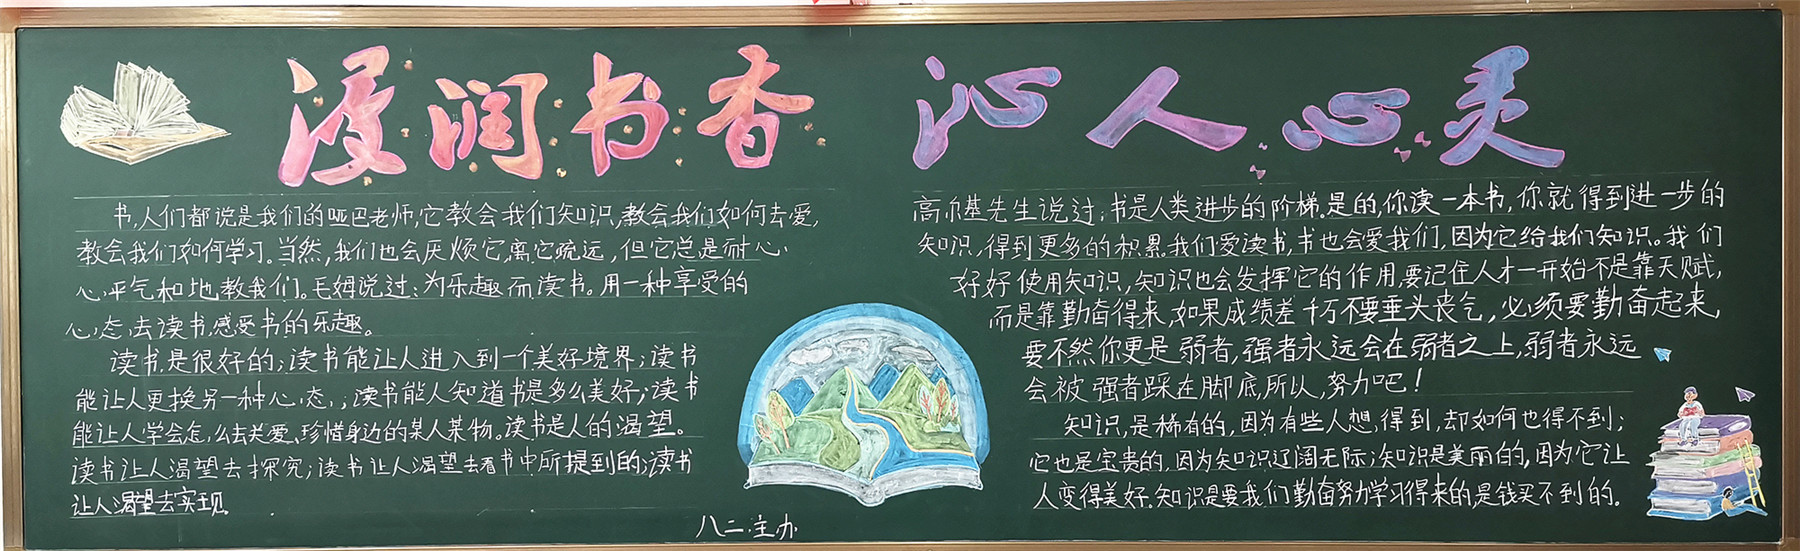 浸润书香 沁人心灵
书,人们都说是我们的哑巴老师,它教会我们知识,教会我们如何去爱,
教会我们如何学习。当然,我们也会厌烦它,离它疏远,但它总是耐心
心平气和地教我们。毛姆说过:为乐趣而读书。用一种享受的
心态去读书,感受书的乐趣。
读书是很好的;读书能让人进入到一个美好境界;读书
能让人更换另一种心态;读书能人知道书是多么美好;读书
能让人学会怎么去关爱、珍惜身边的某人某物。读书是人的渴望。
读书让人渴望去探究;读书让人渴望去看书中所提到的;读书
让人渴望去实现。
高尔基先生说过:书是人类进步的阶梯。是的,你读一本书,你就得到进一步的
知识,得到更多的积累。我们爱读书,书也会爱我们,因为它给我们知识。我们
好好使用知识,知识也会发挥它的作用,要记住人才一开始不是靠天赋,
而是靠勤奋得来,如果成绩差千万不要垂头丧气,必须要勤奋起来,
要不然你更是弱者,强者永远会在弱者之上,弱者永远
会被强者踩在脚底,所以,努力吧!
知识,是稀有的,因为有些人想得到,却如何也得不到;
它也是宝贵的,因为知识辽阔无际;知识是美丽的,因为它让
人变得美好。知识是要我们勤奋努力学习得来的,是钱买不到的。
八二主办